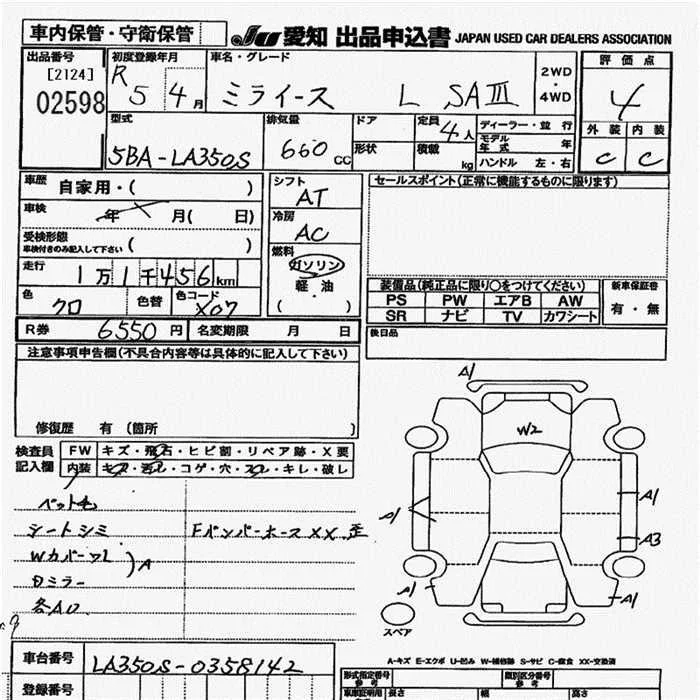 車内保管・守衛保管
JU 愛知 出品申込書 JAPAN USED CAR DEALERS ASSOCIATION
出品番号
[2124]
02598
初度登録年月
R 5 4月
車名・グレード
ミライース L SAIII
2WD
・
4WD
評価点
4
外装 内装
C C
型式
5BA-LA350S
排気量
660 CC
ドア
形状
定員 4人
積載 kg
ディーラー・並行
モデル年式 年
ハンドル 左・右
車歴 自家用・( )
車検 年 月( 日)
受検形態
車検付きのみ記入して下さい ( )
走行 1万1千456km
色 クロ
色替
色コード X07
シフト
AT
冷房
AC
燃料
ガソリン
軽・油
( )
セールスポイント(正常に機能するものに限ります)
装備品(純正品に限り○をつけてください)
PS PW エアB AW
SR ナビ TV カワシート
新車保証書
有・無
R券 6550円 名変期限 月 日
後日品
注意事項申告欄(不具合内容等は具体的に記入して下さい)
修復歴 有 (箇所 )
検査員
記入欄
FW キズ・飛石・ヒビ割・リペア跡・X要
内装 キズ・汚レ・コゲ・穴・スレ・キレ・破レ
ペット毛
シートシミ
FバンパーホースXX 歪
WカバーワL
Dミラー
)A
各AU
A1
W2
A1
A1
A3
A1
A1
スペア
A-キズ E-エクボ U-凹み W-補修跡 S-サビ C-腐食 XX-交換済
車台番号 LA350S-0358142
登録番号
形式指定番号
参考
類別区分番号
参考
車庫証明用
長さ
幅
高さ